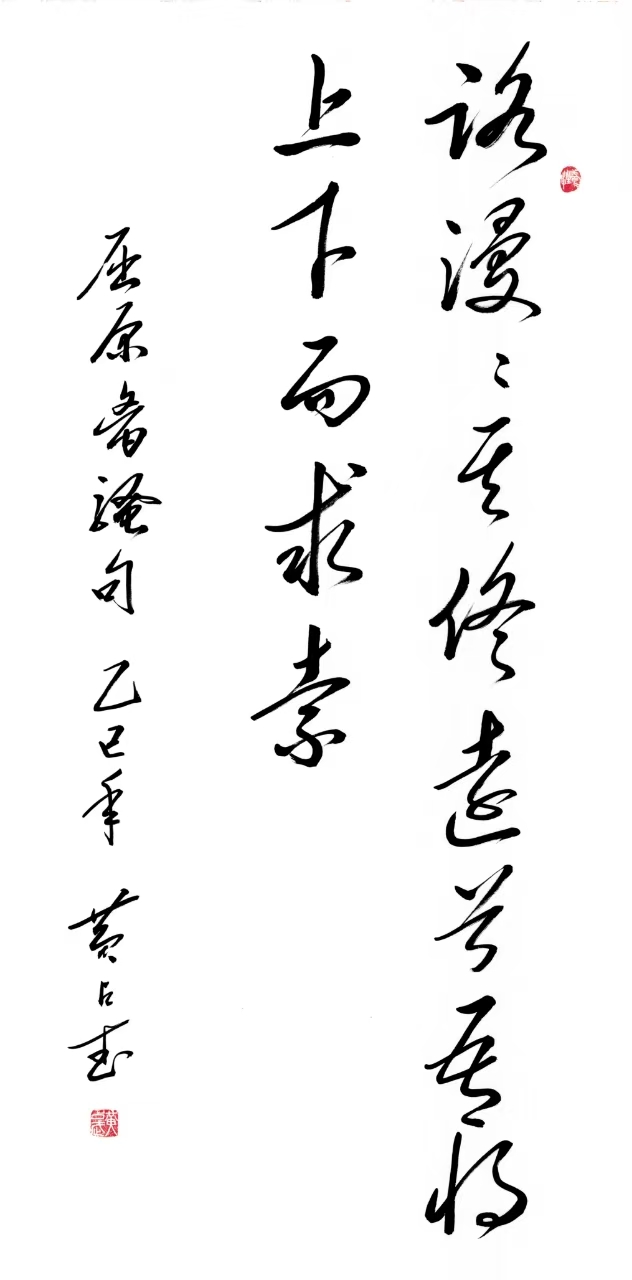 路漫〻其修遠兮吾将
上下而求索
屈原离骚句 乙巳年 黄占武